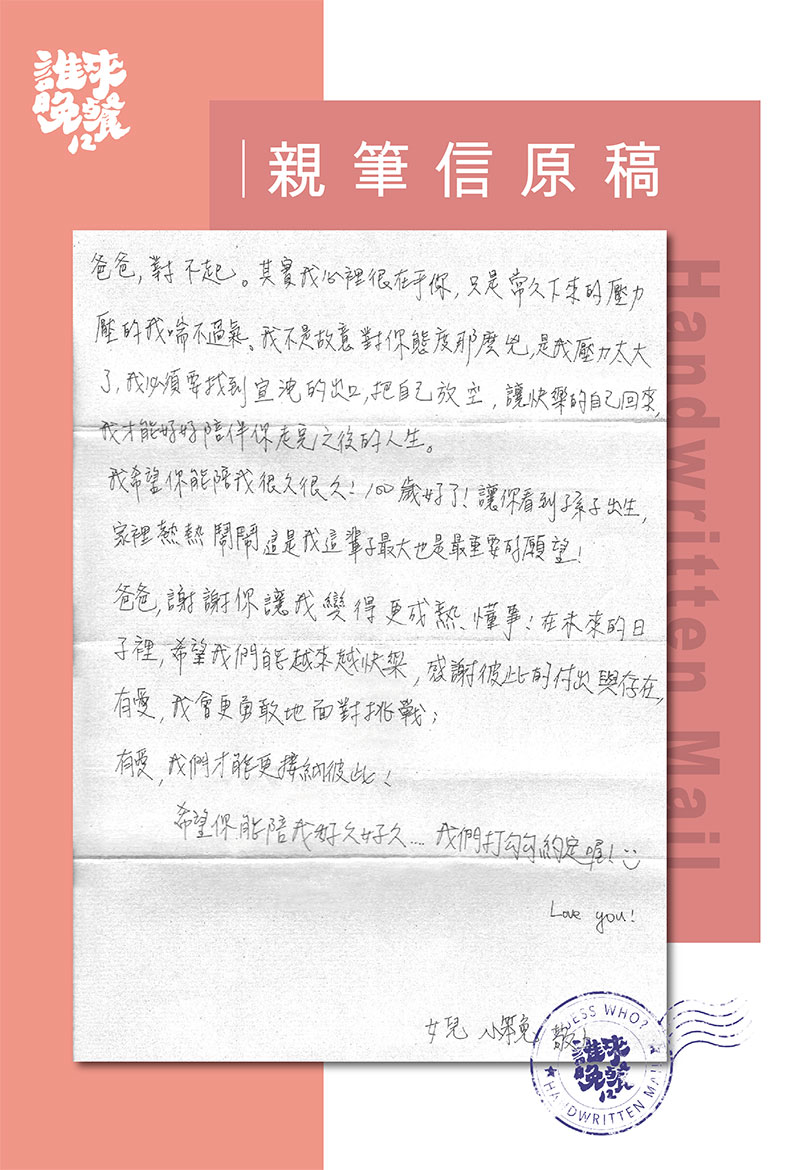 誰來
晚餐
12
親筆信原稿
Handwritten Mail
爸爸,對不起。其實我心裡很在乎你,只是常久下來的壓力
壓的我喘不過氣。我不是故意對你態度那麼兇,是我壓力太大
了,我必須要找到宣洩的出口,把自己放空,讓快樂的自己回來,
我才能好好陪伴你走完之後的人生。
我希望你能陪我很久很久!100歲好了!讓你看到孫子出生,
家裡熱熱鬧鬧這是我這輩子最大也是最重要的願望!
爸爸,謝謝你讓我變得更成熟、懂事!在未來的日
子裡,希望我們能越來越快樂,感謝彼此的付出與存在,
有愛,我會更勇敢地面對挑戰;
有愛,我們才能更接納彼此!
希望你能陪我好久好久....我們打勾勾約定喔!:)
Love you!
女兒 小 敬上
GUESS WHO?
誰來
晚餐
12
HANDWRITTEN MAIL